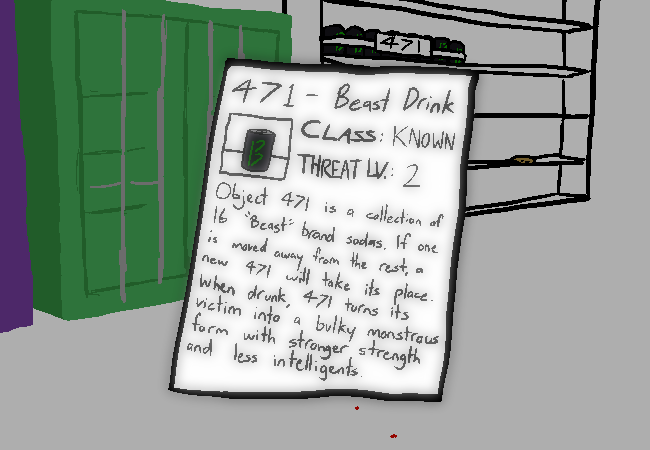 471
471 - Beast Drink
B
CLASS: KNOWN
THREAT LV.: 2
Object 471 is a collection of
16 "Beast" brand sodas. If one
is moved away from the rest, a
new 471 will take its place.
When drunk, 471 turns its
victim into a bulky monstrous
form with stronger strength
and less intelligents.